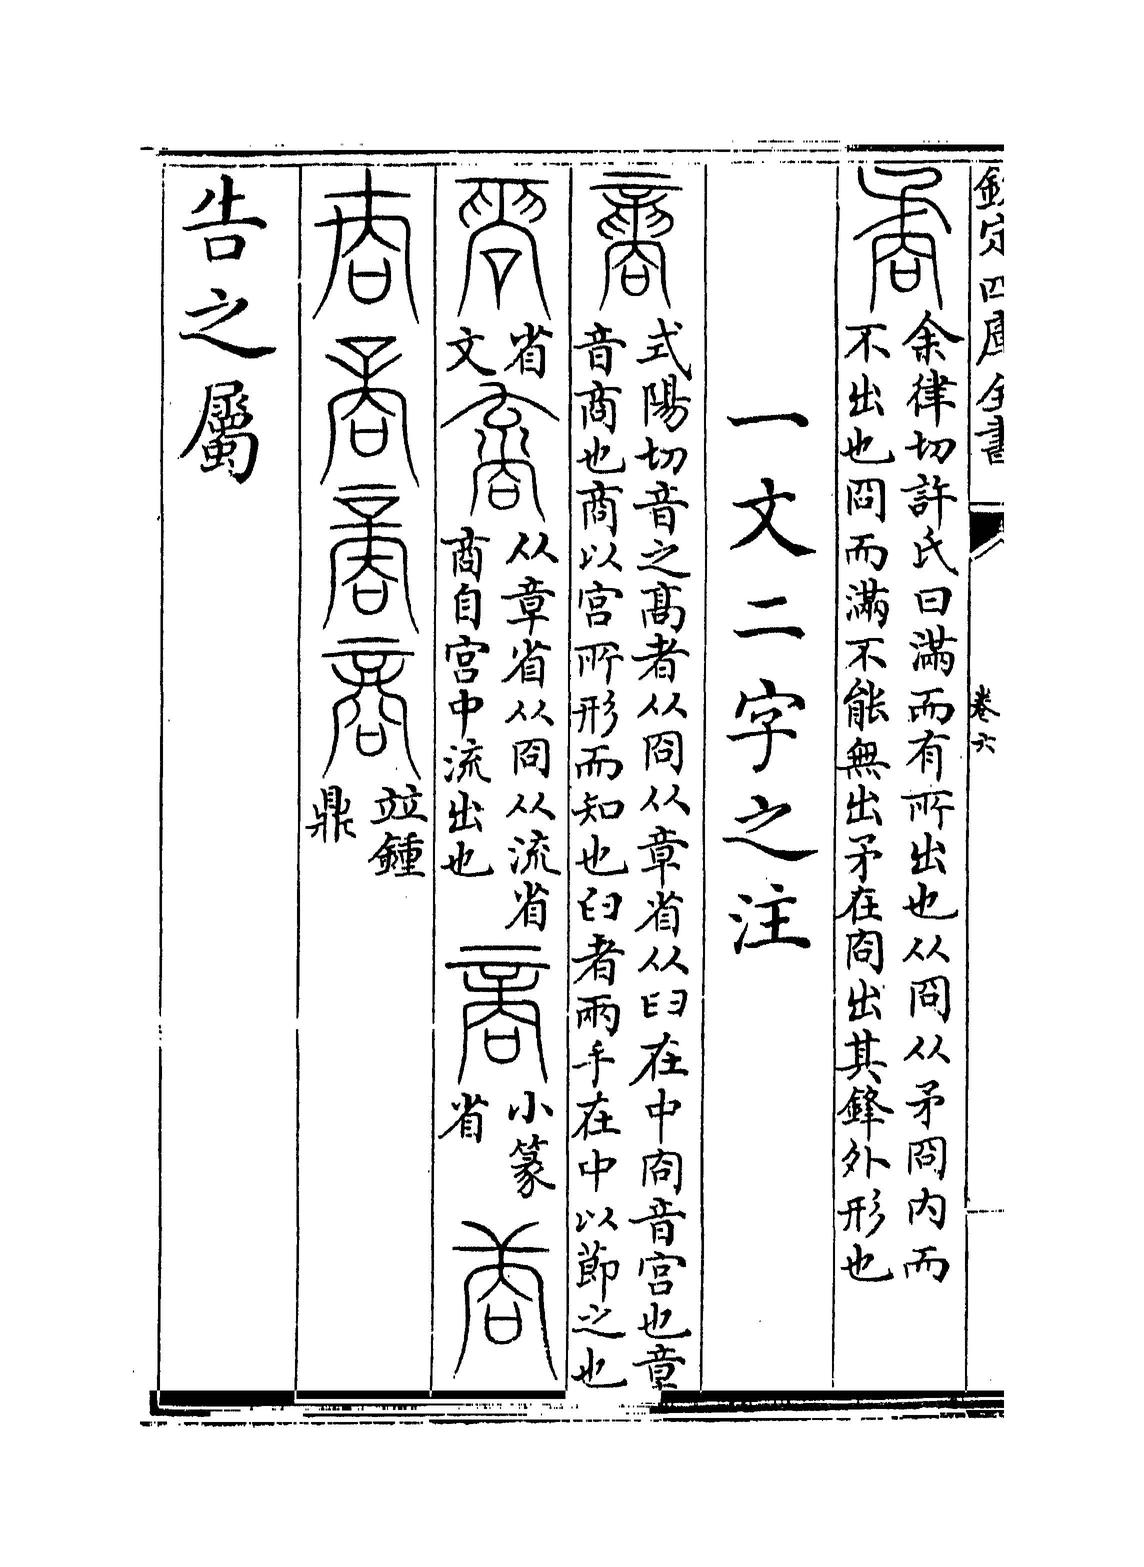 欽定四庫全書
卷六
矞
余律切許氏曰滿而有所出也从冏从矛冏内而
不出也冏而滿不能無出矛在冏出其鋒外形也
一文二字之注
式陽切音之高者从冏从章省从𦥑在中冏音宫也章
音商也商以宫所形而知也𦥑者兩手在中以節之也
省
文
从章省从冏从流省
商自宫中流出也
小篆
省
竝鍾
鼎
告之屬